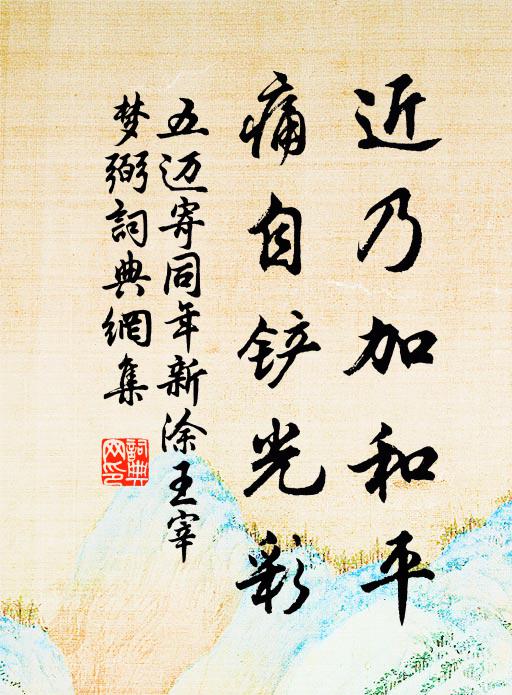 近乃加和平
痛自铲光彩
五迈寄同年新涂王宰
梦弼詞典網集
詞典
网印